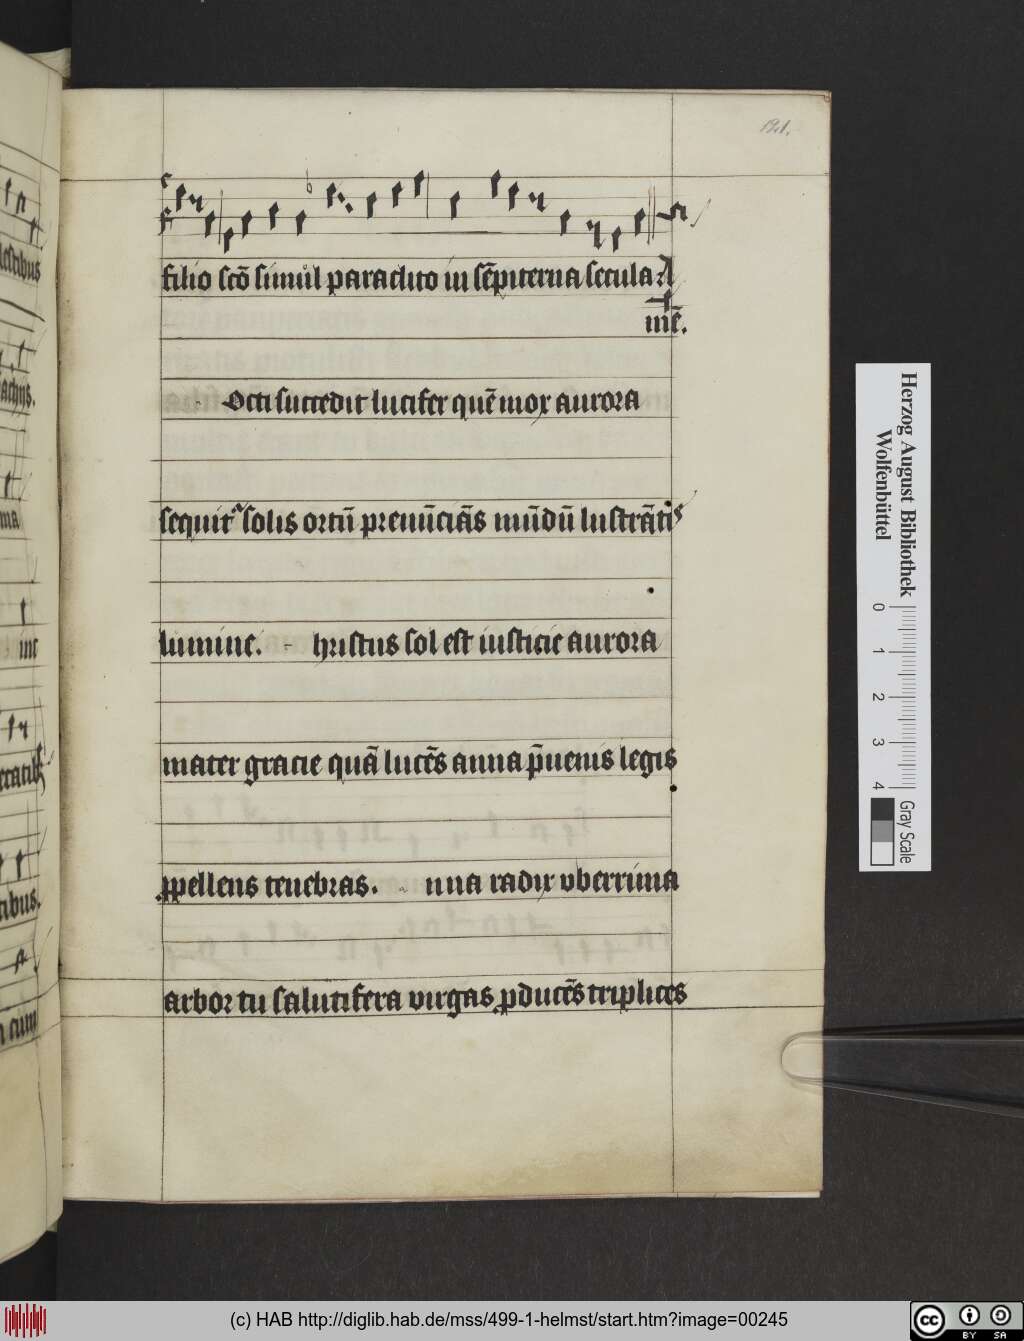 121.
filio scō simul paraclito in sēpiterna secula A
mē.
octi succedit lucifer quē mox aurora
sequitr solis ortū prenūciās mūdū lustrātis
lumine. hristus sol est iusticie aurora
mater gracie quā lucēs anna p̄uenis legis
ꝓpellens tenebras. nna radix vberrima
arbor tu salutifera virgas ꝓducēs triplices
Herzog August Bibliothek
Wolfenbüttel
0 1 2 3 4
Gray Scale
(c) HAB http://diglib.hab.de/mss/499-1-helmst/start.htm?image=00245
cc BY SA